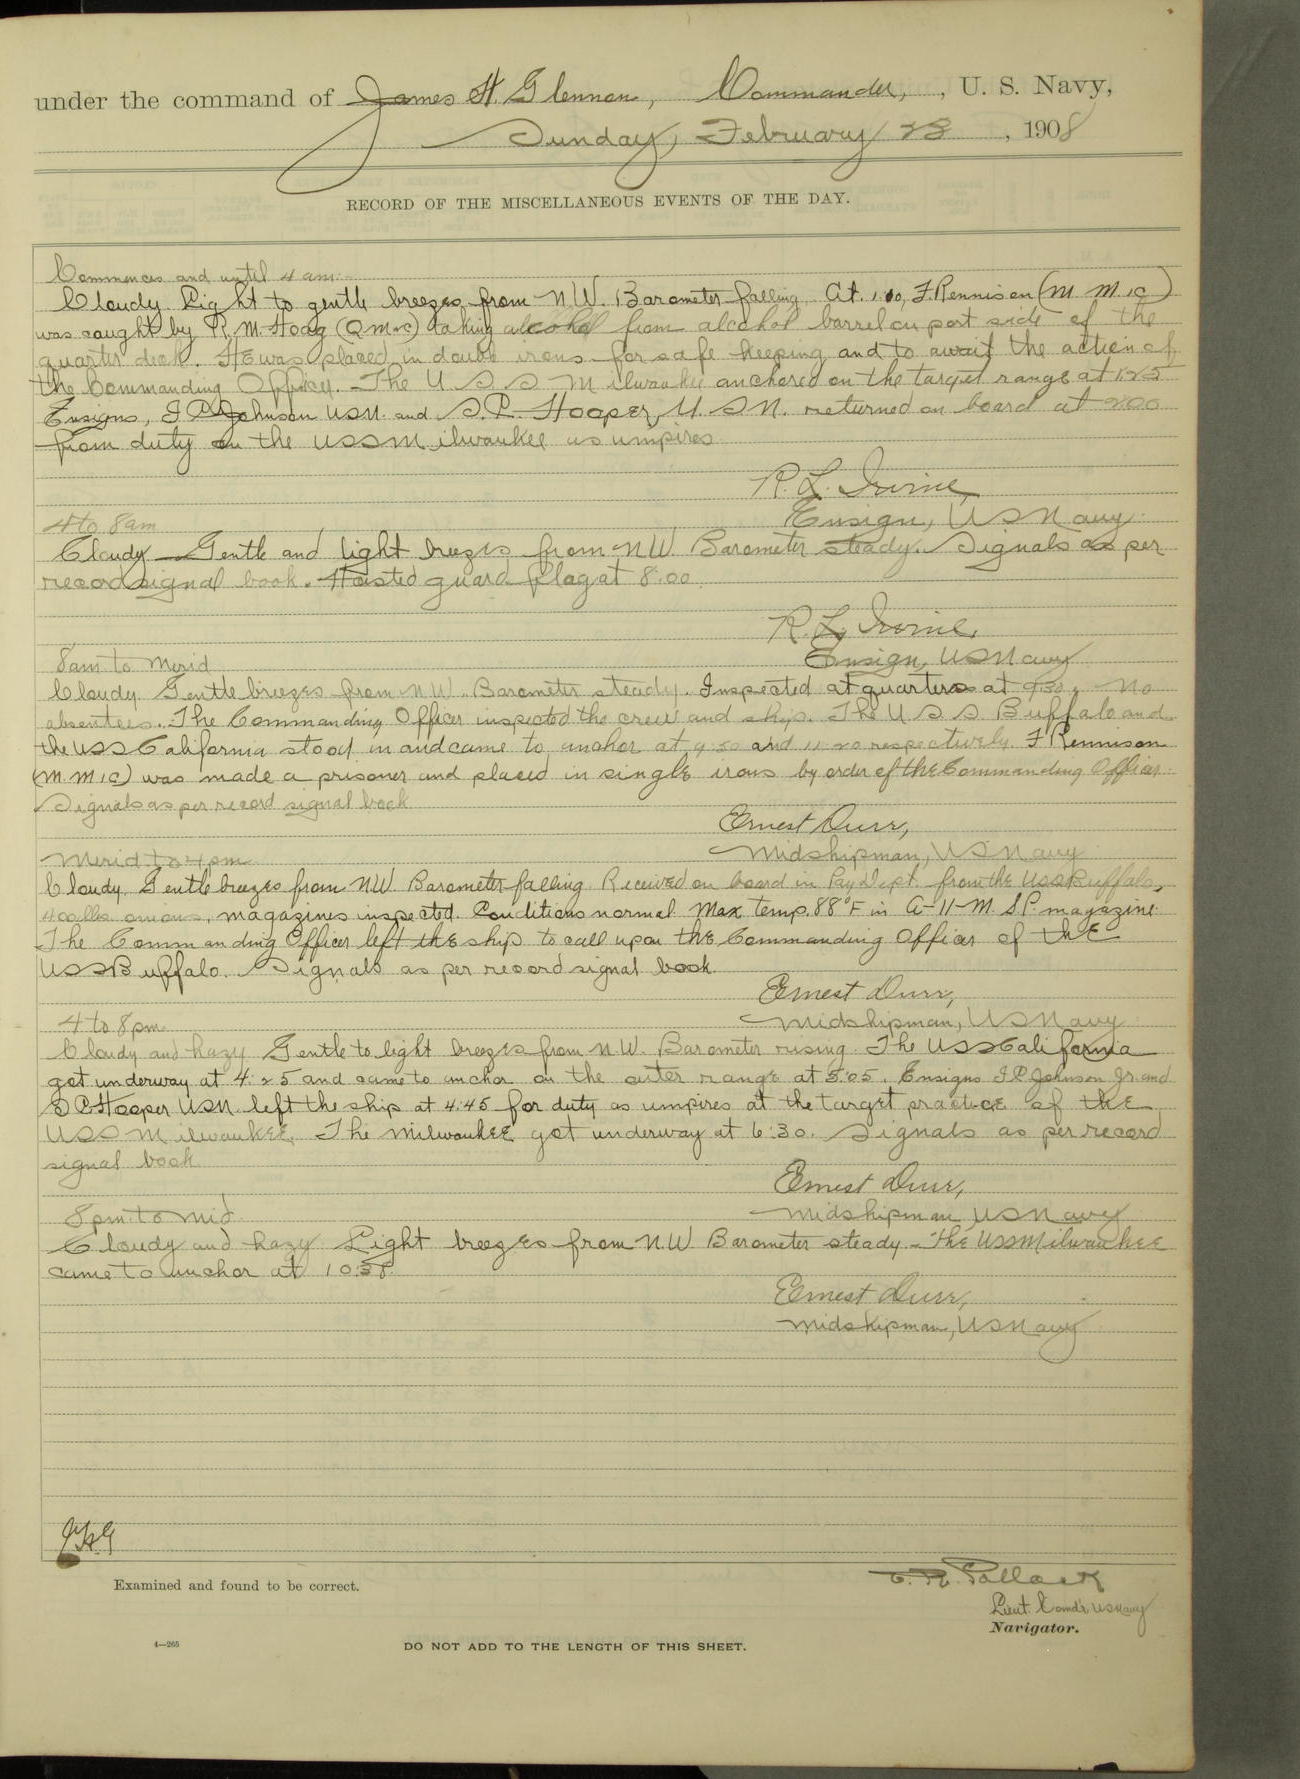 under the command of James H. Glennon, Commander, , U. S. Navy,
Sunday, February 23 , 1908
RECORD OF THE MISCELLANEOUS EVENTS OF THE DAY.
Commences and until 4 am:-
Cloudy. Light to gentle breezes from N.W. Barometer falling. At F Rennison (M M 1c)
was caught by R. M. Hoag (Q M 2c) taking alcohol from alcohol barrel on port side of the
quarter deck. He was placed in double irons for safe keeping and to await the action of
the Commanding Officer. The U S S Milwaukee anchored on the target range at 1:25
Ensigns, I P Johnson USN. and S.C. Hooper, U.S.N. returned on board at 2:00
from duty on the USS Milwaukee as umpires
R. L. Irvine,
Ensign, US Navy
4 to 8 am
Cloudy Gentle and light breezes from NW Barometer steady. Signals as per
record signal book. Hoisted guard flag at 8:00.
R. L. Irvine,
Ensign, US Navy
8am to Merid
Cloudy. Gentle breezes from NW. Barometer steady. Inspected at quarters at 9:30, No
absentees. The Commanding Officer inspected the crew and ship. The U S S Buffalo and
the USS California stood in and came to anchor at 9:50 and 11:20 respectively. F Rennison
(M.M 1c) was made a prisoner and placed in single irons by order of the Commanding Officer.
Signals as per record signal book
Ernest Durr,
Midshipman, US Navy
Merid to 4 pm
Cloudy. Gentle breezes from NW Barometer falling. Received on board in Pay Dept. from the USS Buffalo,
400 lbs onions, magazines inspected. Conditions normal Max temp. 88°F in A-11-M S.P. magazine.
The Commanding Officer left the ship to call upon the Commanding Officer of the
USS Buffalo. Signals as per record signal book.
Ernest Durr,
Midshipman, US Navy
4 to 8 pm
Cloudy and hazy Gentle to light breezes from N.W. Barometer rising. The USS California
got underway at 4:25 and came to anchor on the outer range at 5:05. Ensigns I P Johnson Jr. and
S C Hooper USN. left the ship at 4:45 for duty as umpires at the target practice of the
USS Milwaukee. The Milwaukee got underway at 6:30. Signals as per record
signal book
Ernest Durr,
Midshipman, US Navy
8 pm. to Mid
Cloudy and hazy Light breezes from N.W Barometer steady. The USS Milwaukee
came to anchor at
Ernest Durr,
Midshipman, US Navy
JHG
Examined and found to be correct.
E. H. Pollack
Lieut. Comd'r. US Navy
Navigator.
4—265
DO NOT ADD TO THE LENGTH OF THIS SHEET.